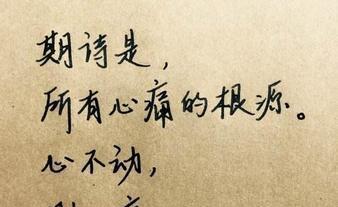 期诗是，
所有心痛的根源。
心不动，